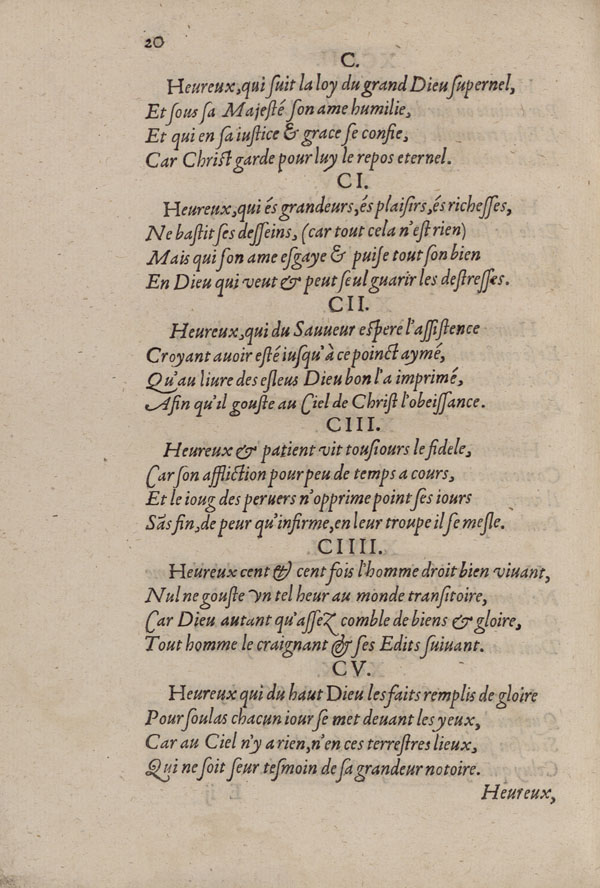 20
C.
Heureux, qui ſuit la loy du grand Dieu ſupernel,
Et ſous ſa Majeſté ſon ame humilie,
Et qui en ſa iuſtice & grace ſe confie,
Car Chriſt garde pour luy le repos eternel.
CI.
Heureux, qui és grandeurs, és plaiſirs, és richeſſes,
Ne baſtit ſes deſſeins, (car tout cela n'eſt rien)
Mais qui ſon ame eſgaye & puiſe tout ſon bien
En Dieu qui veut & peut ſeul guarir les deſtreſſes.
CII.
Heureux, qui du Sauueur eſpere l'aſſiſtence
Croyant auoir eſté iuſqu'à ce poinct aymé,
Qu'au liure des eſleus Dieu bon l'a imprimé,
Afin qu'il gouſte au Ciel de Chriſt l'obeiſſance.
CIII.
Heureux & patient vit touſiours le fidele,
Car ſon affliction pour peu de temps a cours,
Et le ioug des peruers n'opprime point ſes iours
Sãs fin, de peur qu'infirme, en leur troupe il ſe meſle.
CIIII.
Heureux cent & cent fois l'homme droit bien viuant,
Nul ne gouſte vn tel heur au monde tranſitoire,
Car Dieu autant qu'aſſez comble de biens & gloire,
Tout homme le craignant & ſes Edits ſuiuant.
CV.
Heureux qui du haut Dieu les faits remplis de gloire
Pour ſoulas chacun iour ſe met deuant les yeux,
Car au Ciel n'y a rien, n'en ces terreſtres lieux,
Qui ne ſoit ſeur teſmoin de ſa grandeur notoire.
Heureux,